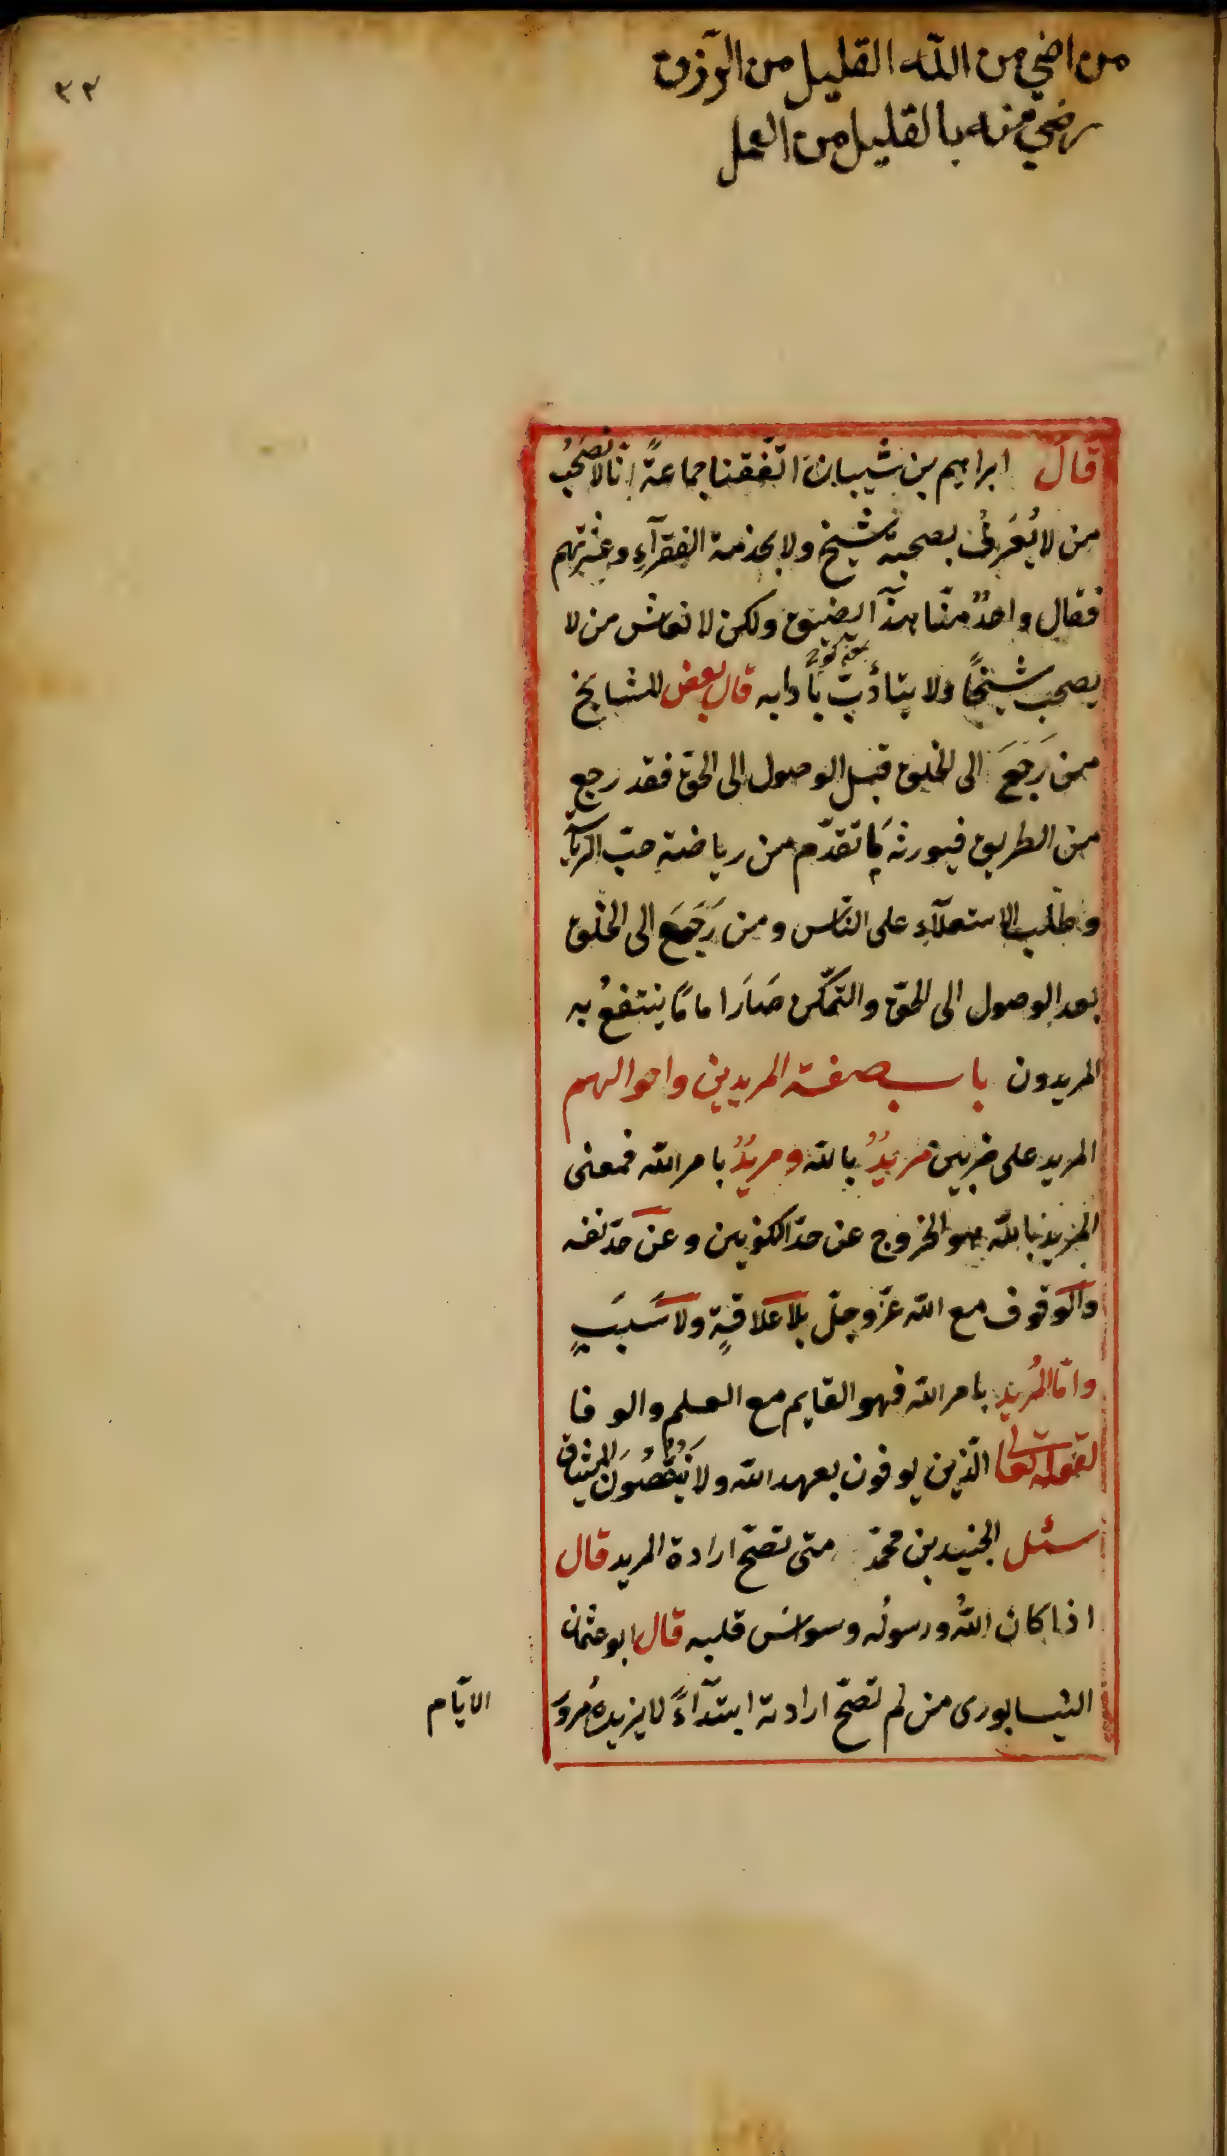 ٣٢
من اضي من الله القليل من الرّزق
رضي منه بالقليل من العمل
قال ابراهيم بن شيبان اتّفقنا جماعةً انّا لا نصحبُ
من لا يُعرَفُ بصحبة شيخ ولا بخدمة الفقرآءِ وعشرتهم
فقال واحدٌ منّا هذآ الضيق ولكن لا نعاشر من لا
يصحب شيخًا ولا يتأدّبُ بآدابه قال بعض المشايخ
من رَجَعَ الى الخلق قبل الوصول الى الحقّ فقد رجع
من الطريق فيورثه ما تقدّم من رياضته حبّ الرياآ
وطلب الاستعلآءِ على النّاس ومن رَجَعَ الى الخلق
بعد الوصول الى الحقّ والتمكّن صَارَ امامًا ينتفعُ به
المريدون باب صفة المريدين واحوالهم
المريد على ضربين مريدٌ بالله ومريدٌ بامر الله فمعنى
المريد بالله هو الخروج عن حدّ الكونين وعن حدّ نفسه
والوقوف مع الله عزّ وجلّ بلا علاقةٍ ولا سَبَبٍ
وامّا المُريد بامر الله فهو القايم مع العلم والوفا
لقوله تعالى الّذين يوفون بعهد الله ولا يَنْقُضُونَ الميثاق
سئل الجنيد بن محمّد متى تصحّ ارادة المريد قال
اذا كان اللهُ ورسولُه وسواس قلبه قال ابو عثمان
النيسابورى من لم تصحّ ارادته ابتدآءً لا يزيدهُ مُرورَ
الايّام